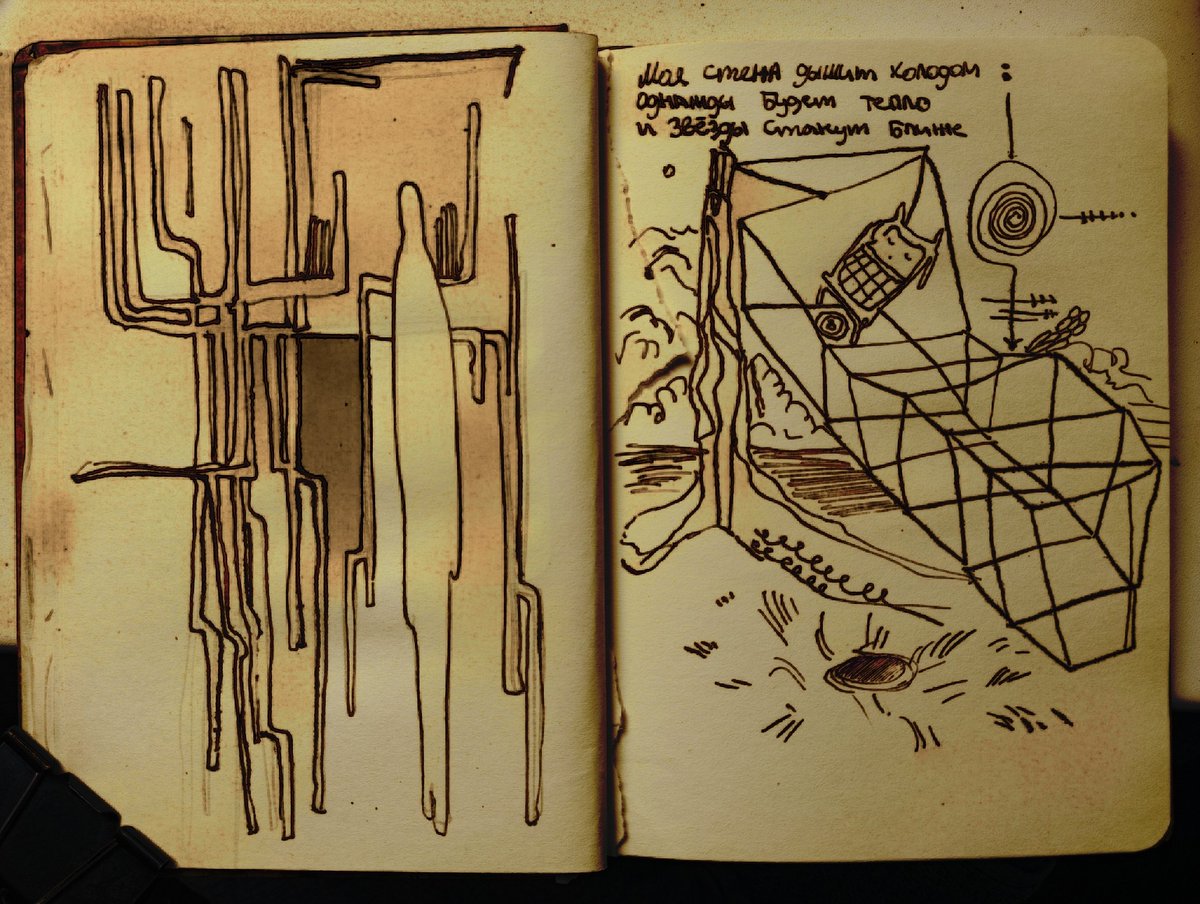 Моя стена дышит холодом :
однажды будет тепло
и звёзды станут ближе